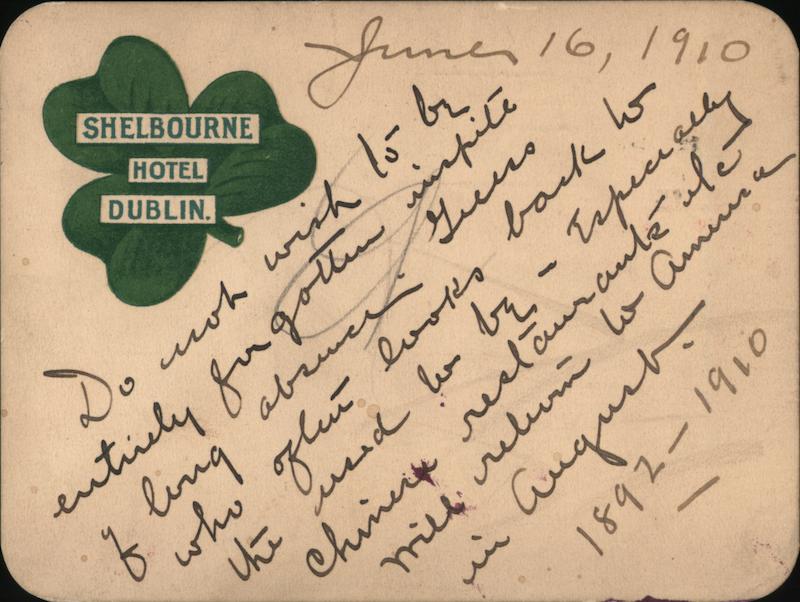 June 16, 1910
SHELBOURNE
HOTEL
DUBLIN.
Do not wish to be
entirely forgotten inspite
of long absence. Greers
who often looks back to
the used to be - Especially
Chinese restaurants etc
Will return to America
in August.
1892 - 1910